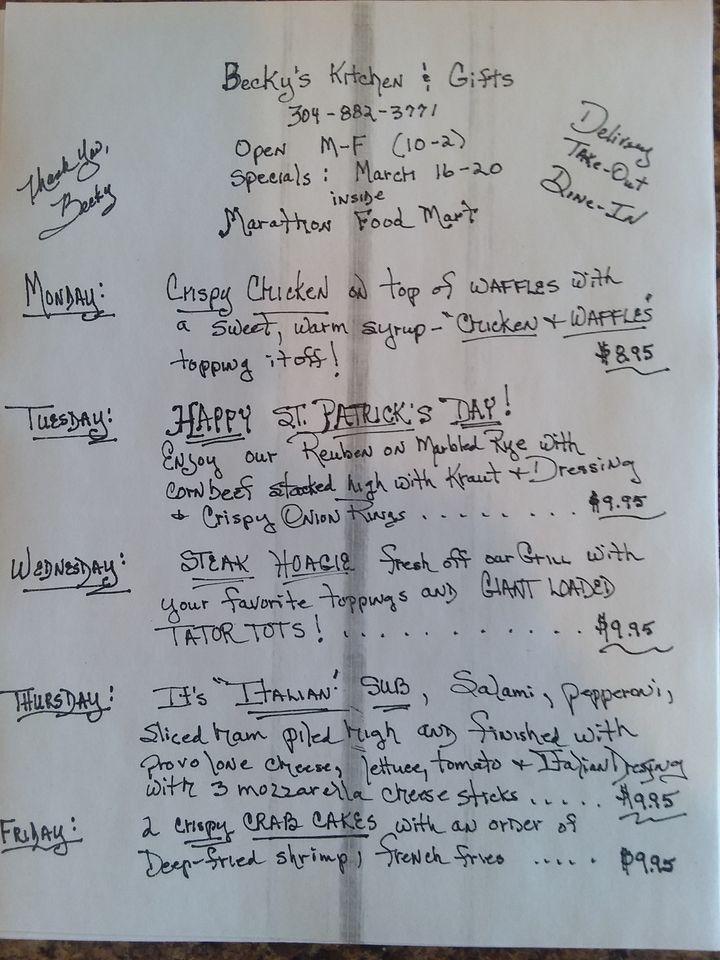 Becky's Kitchen & Gifts
304-882-3771
Open M-F (10-2)
Specials: March 16-20
inside
Marathon Food Mart
Thank You,
Becky
Delivery
Take-Out
Dine-In
Monday: Crispy Chicken on top of WAFFLES with
a sweet, warm syrup - "Chicken & WAFFLES"
topping it off! $8.95
Tuesday: HAPPY ST. PATRICK'S DAY!
Enjoy our Reuben on Marbled Rye with
corn beef stacked high with Kraut & Dressing
& Crispy Onion Rings ........ $9.95
Wednesday: STEAK HOAGIE fresh off our Grill with
your favorite toppings and GIANT LOADED
TATOR TOTS! ............ $9.95
Thursday: It's "ITALIAN" SUB, Salami, pepperoni,
sliced ham piled high and finished with
provolone cheese, lettuce, tomato & Italian Dressing
with 3 mozzarella cheese sticks ..... $9.95
Friday: 2 crispy CRAB CAKES with an order of
Deep-fried shrimp, french fries ..... $9.95